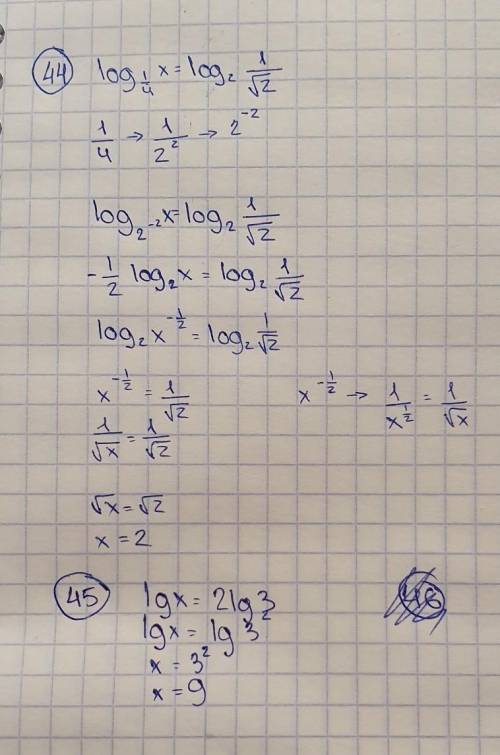 44 log_{1/4} x = log_2 1/√2
1/4 → 1/2² → 2⁻²
log_{2⁻²} x = log_2 1/√2
-1/2 log_2 x = log_2 1/√2
log_2 x^{-1/2} = log_2 1/√2
x^{-1/2} = 1/√2    x^{-1/2} → 1/x^{1/2} = 1/√x
1/√x = 1/√2
√x = √2
x = 2
45 lgx = 2lg3
lgx = lg3²
x = 3²
x = 9